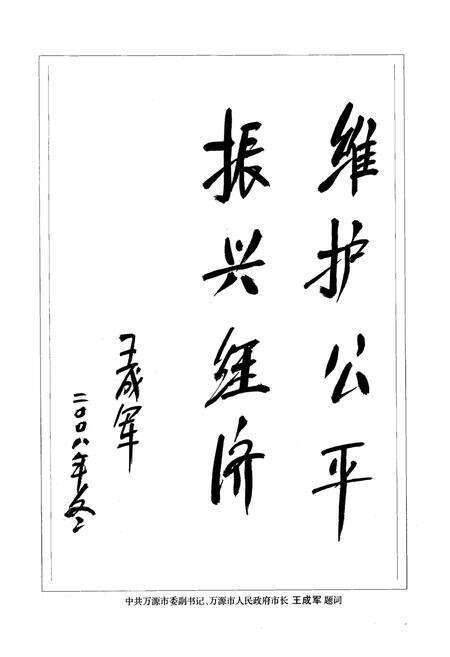 维护公平
振兴经济
王成军
二〇〇八年冬
中共万源市委副书记、万源市人民政府市长 王成军 题词